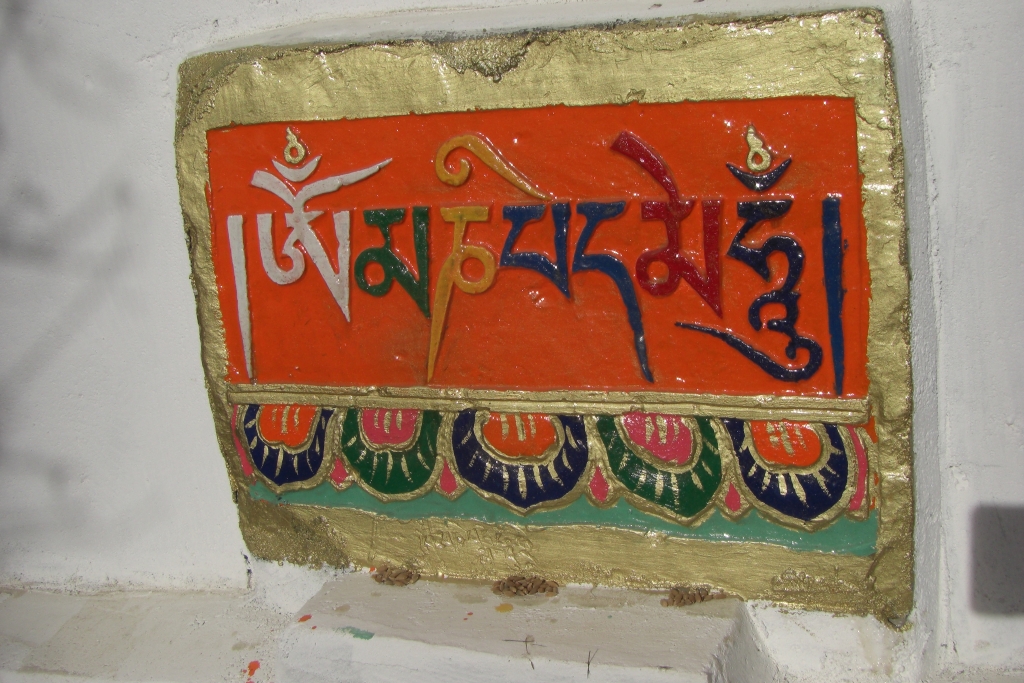 །ཨོཾ་མ་ཎི་པད་མེ་ཧཱུྃ།